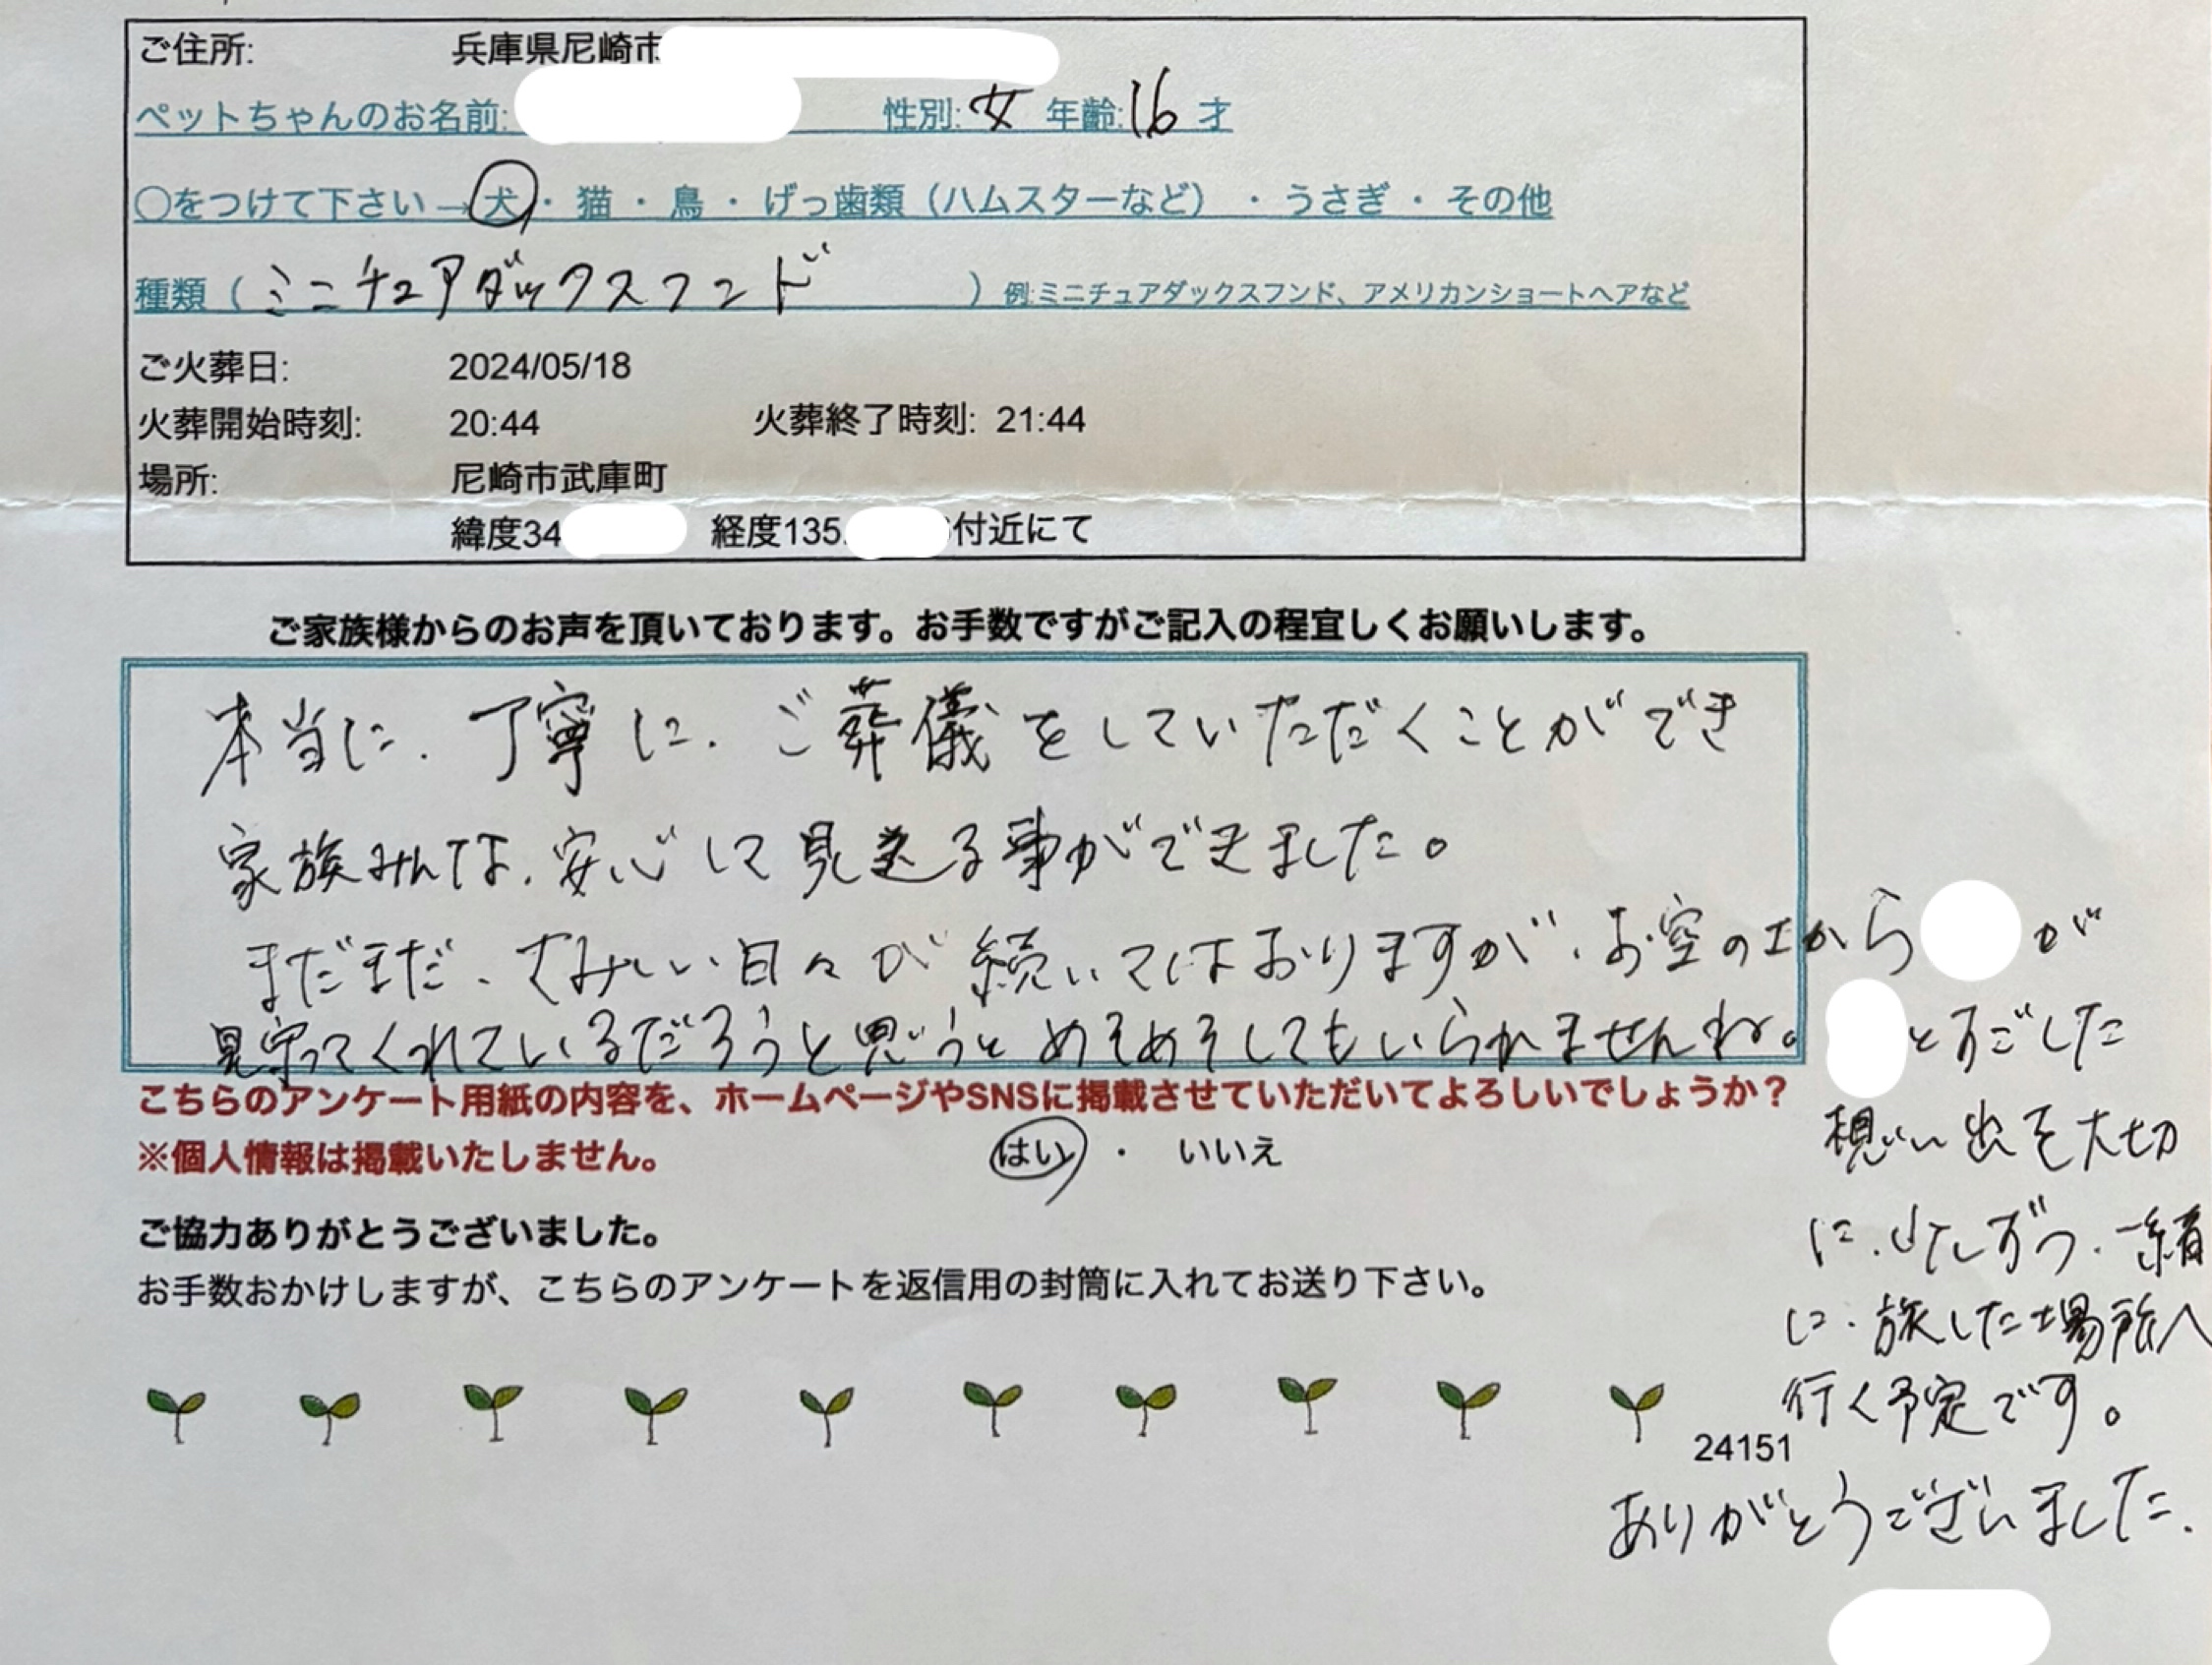 ご住所: 兵庫県尼崎市
ペットちゃんのお名前: 性別:女 年齢:16才
○をつけて下さい→犬・猫・鳥・げっ歯類（ハムスターなど）・うさぎ・その他
種類（ミニチュアダックスフンド）例:ミニチュアダックスフンド、アメリカンショートヘアなど
ご火葬日: 2024/05/18
火葬開始時刻: 20:44 火葬終了時刻: 21:44
場所: 尼崎市武庫町
緯度34 経度135. 付近にて
ご家族様からのお声を頂いております。お手数ですがご記入の程宜しくお願いします。
本当に、丁寧に、ご葬儀をしていただくことができ
家族みんな、安心して見送る事ができました。
まだまだ、さみしい日々が続いてはおりますが、お空の上から が
見守ってくれているだろうと思うとめそめそしてもいられませんね。 とすごした
想い出を大切
に、少しずつ、一緒
に、旅した場所へ
行く予定です。
ありがとうございました。
こちらのアンケート用紙の内容を、ホームページやSNSに掲載させていただいてよろしいでしょうか？
※個人情報は掲載いたしません。 はい ・ いいえ
ご協力ありがとうございました。
お手数おかけしますが、こちらのアンケートを返信用の封筒に入れてお送り下さい。
24151